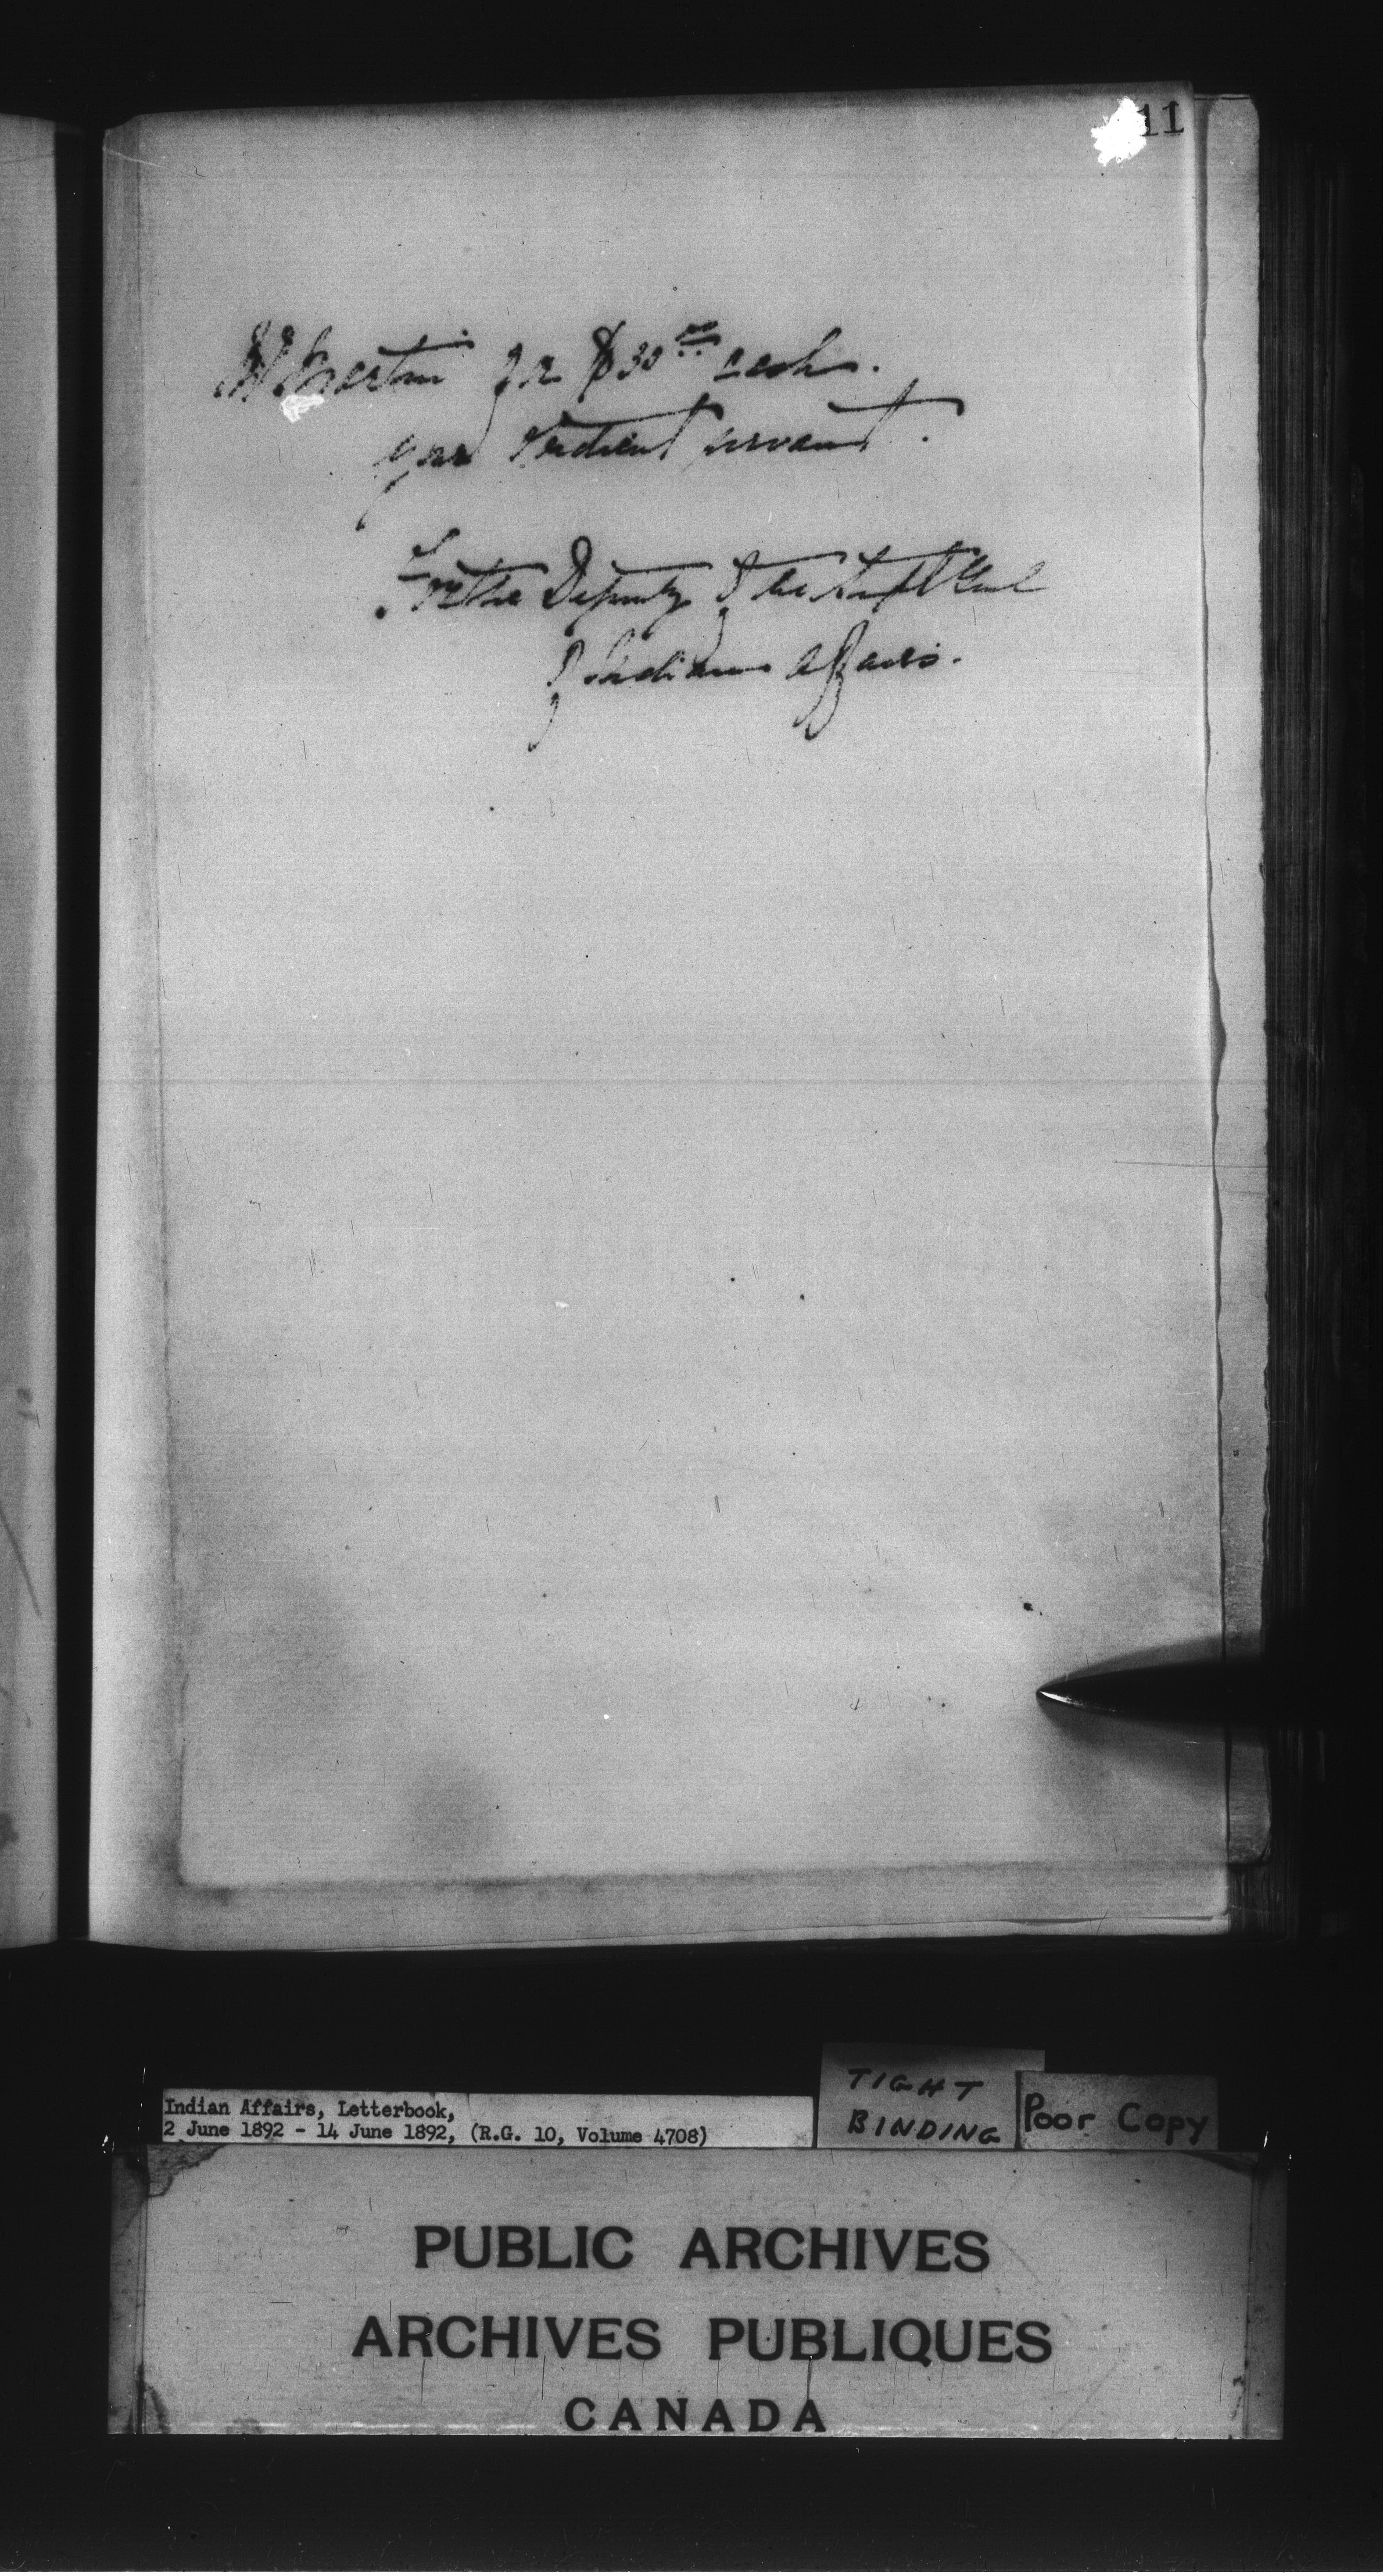 11
for $30.00 each.
your obedient servant.
For the Deputy of the Supt Genl
of Indian Affairs.
Indian Affairs, Letterbook,
2 June 1892 - 14 June 1892, (R.G. 10, Volume 4708)
TIGHT
BINDING
Poor Copy
PUBLIC ARCHIVES
ARCHIVES PUBLIQUES
CANADA